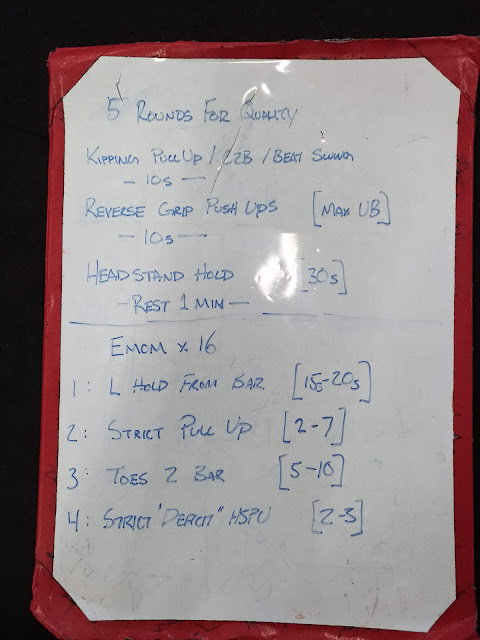 5 ROUNDS FOR QUALITY
KIPPING PULL UP / C2B / BEAT SWING
— 10s —
REVERSE GRIP PUSH UPS [MAX UB]
— 10s —
HEADSTAND HOLD [30s]
— REST 1 MIN —
EMOM x 16
1: L HOLD FROM BAR [15-20s]
2: STRICT PULL UP [2-7]
3: TOES 2 BAR [5-10]
4: STRICT "DEFICIT" HSPU